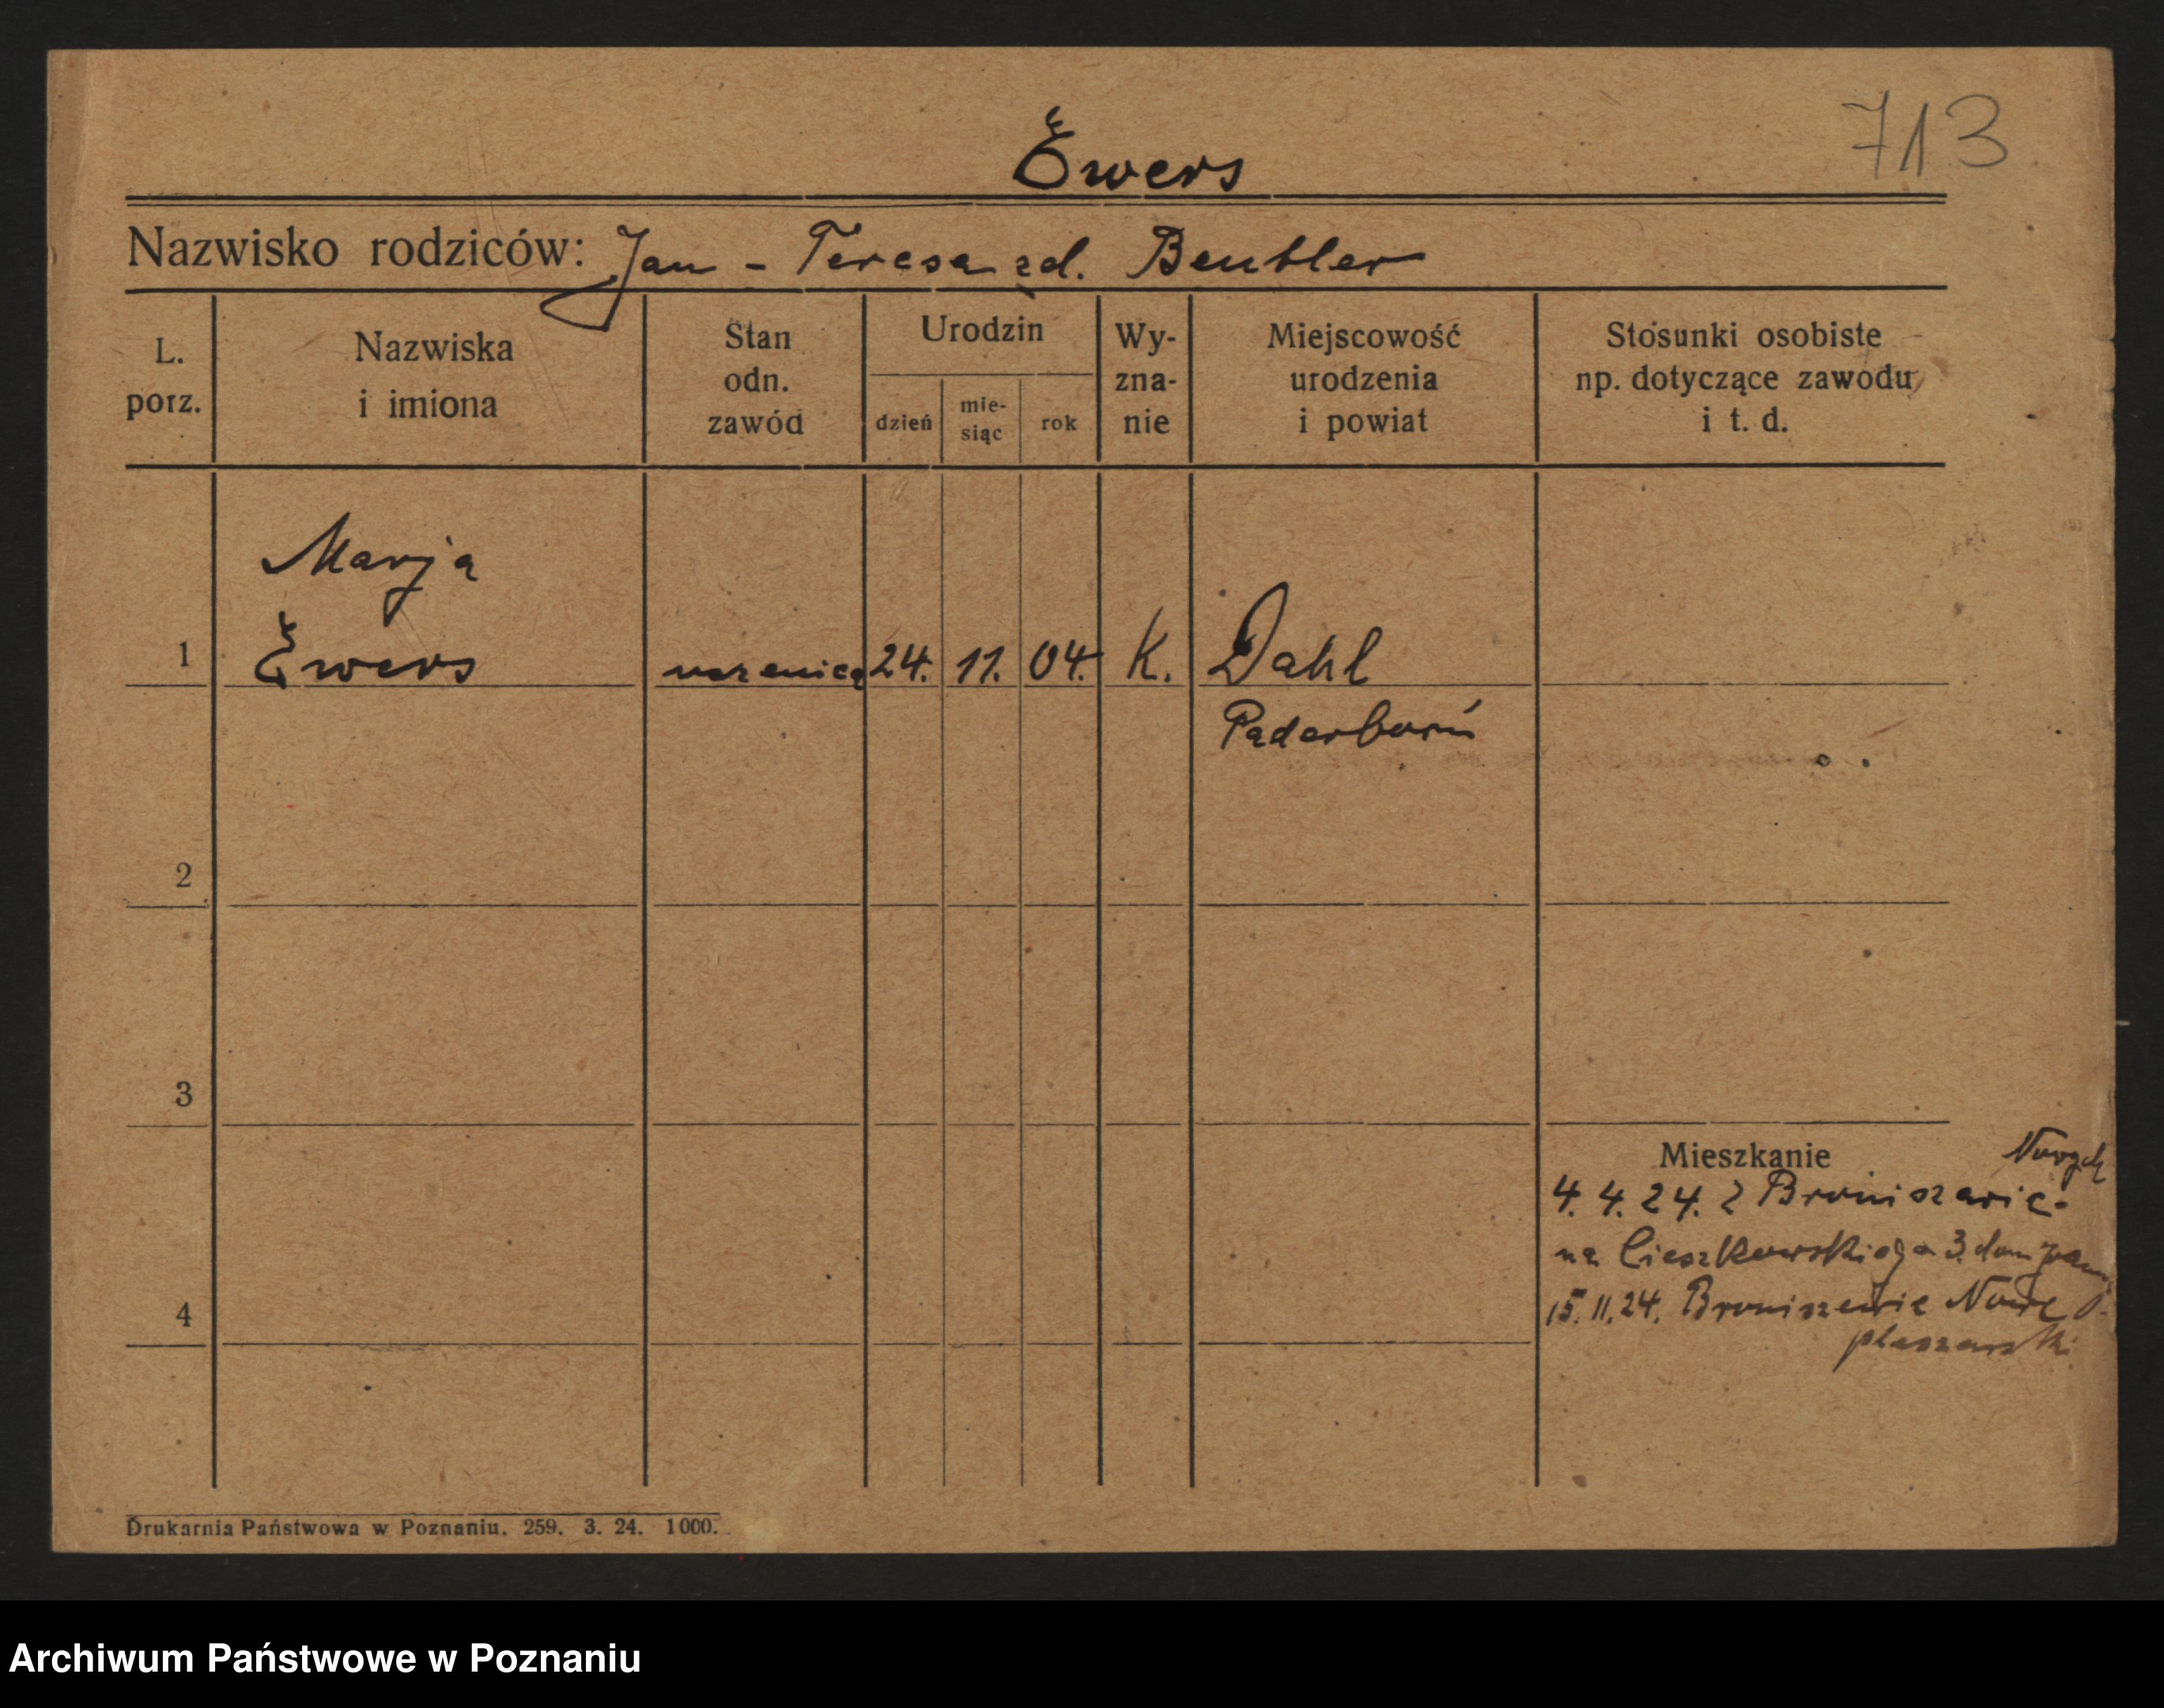 713
Ewers
Nazwisko rodziców: Jan - Teresa zd. Beubler
L. porz.
Nazwiska i imiona
Stan odn. zawód
Urodzin
dzień
mie-
siąc
rok
Wy-
zna-
nie
Miejscowość urodzenia i powiat
Stosunki osobiste np. dotyczące zawodu i t. d.
Marja
1 Ewers uczenica 24. 11. 04. K. Dahl
Paderborń
2
3
Mieszkanie
Nowych
4. 4. 24. z Broniszewic-
na Cieszkowskiego 3. dom
4
15. 11. 24. Broniszewice Nowe
pleszewski
Drukarnia Państwowa w Poznaniu. 259. 3. 24. 1000.
Archiwum Państwowe w Poznaniu